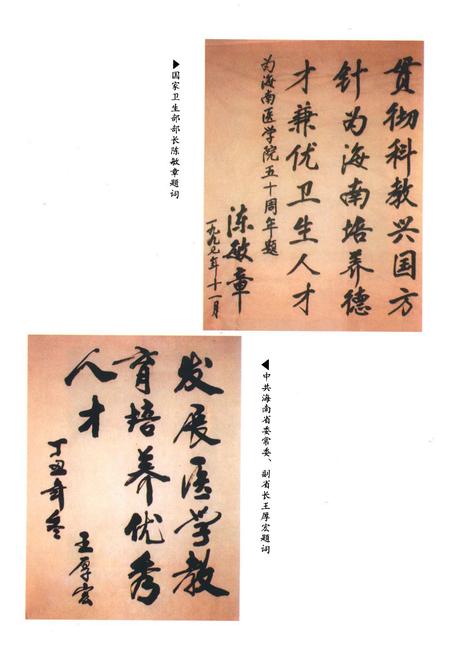 ▶国家卫生部部长陈敏章题词
贯彻科教兴国方
针为海南培养德
才兼优卫生人才
为海南医学院五十周年题
陈敏章
一九九七年十一月
◀中共海南省委常委、副省长王厚宏题词
发展医学教
育培养优秀
人才
丁丑年冬
王厚宏